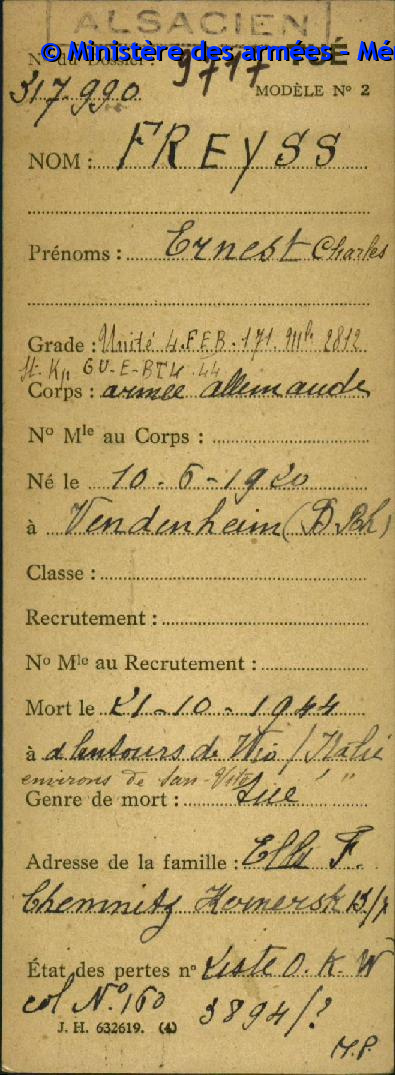 ALSACIEN
© Ministère des armées - Mé
N° du Dossier : 9717 TUÉ
317.990
MODÈLE N° 2
NOM : FREYSS
Prénoms : Ernest Charles
Grade : Unité 4.FEB.171. 2812
St. Kp GU-E-BTL 44
Corps : armée allemande
N° Mle au Corps :
Né le 10-6-1920
à Vendenheim (B.Rh)
Classe :
Recrutement :
N° Mle au Recrutement :
Mort le 21-10-1944
à alentours de / Italie
environs de San-Vito "
Genre de mort : tué
Adresse de la famille : F.
Chemnitz 15/7
État des pertes n° Liste O.K.W
col N° 160 3894/?
J. H. 632619. (4)
M.P.